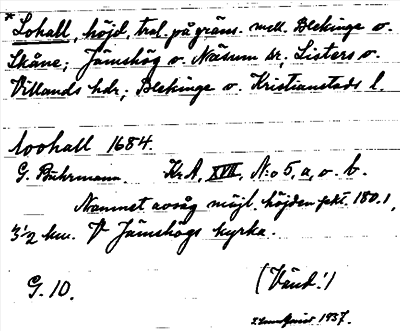 * Lohall, höjd, trol. på gräns. mell. Blekinge o.
Skåne; Jämshög o. Näsum sr. Listers o.
Villands hdr.; Blekinge o. Kristianstads l.
loohall 1684.
G. Buhrmann. KrA, XVII, N:o 5, a, o. b.
Namnet avsåg möjl. höjden pkt. 180.1,
3½ km. V Jämshögs kyrka.
G. 10. (Vänd!)
1937.